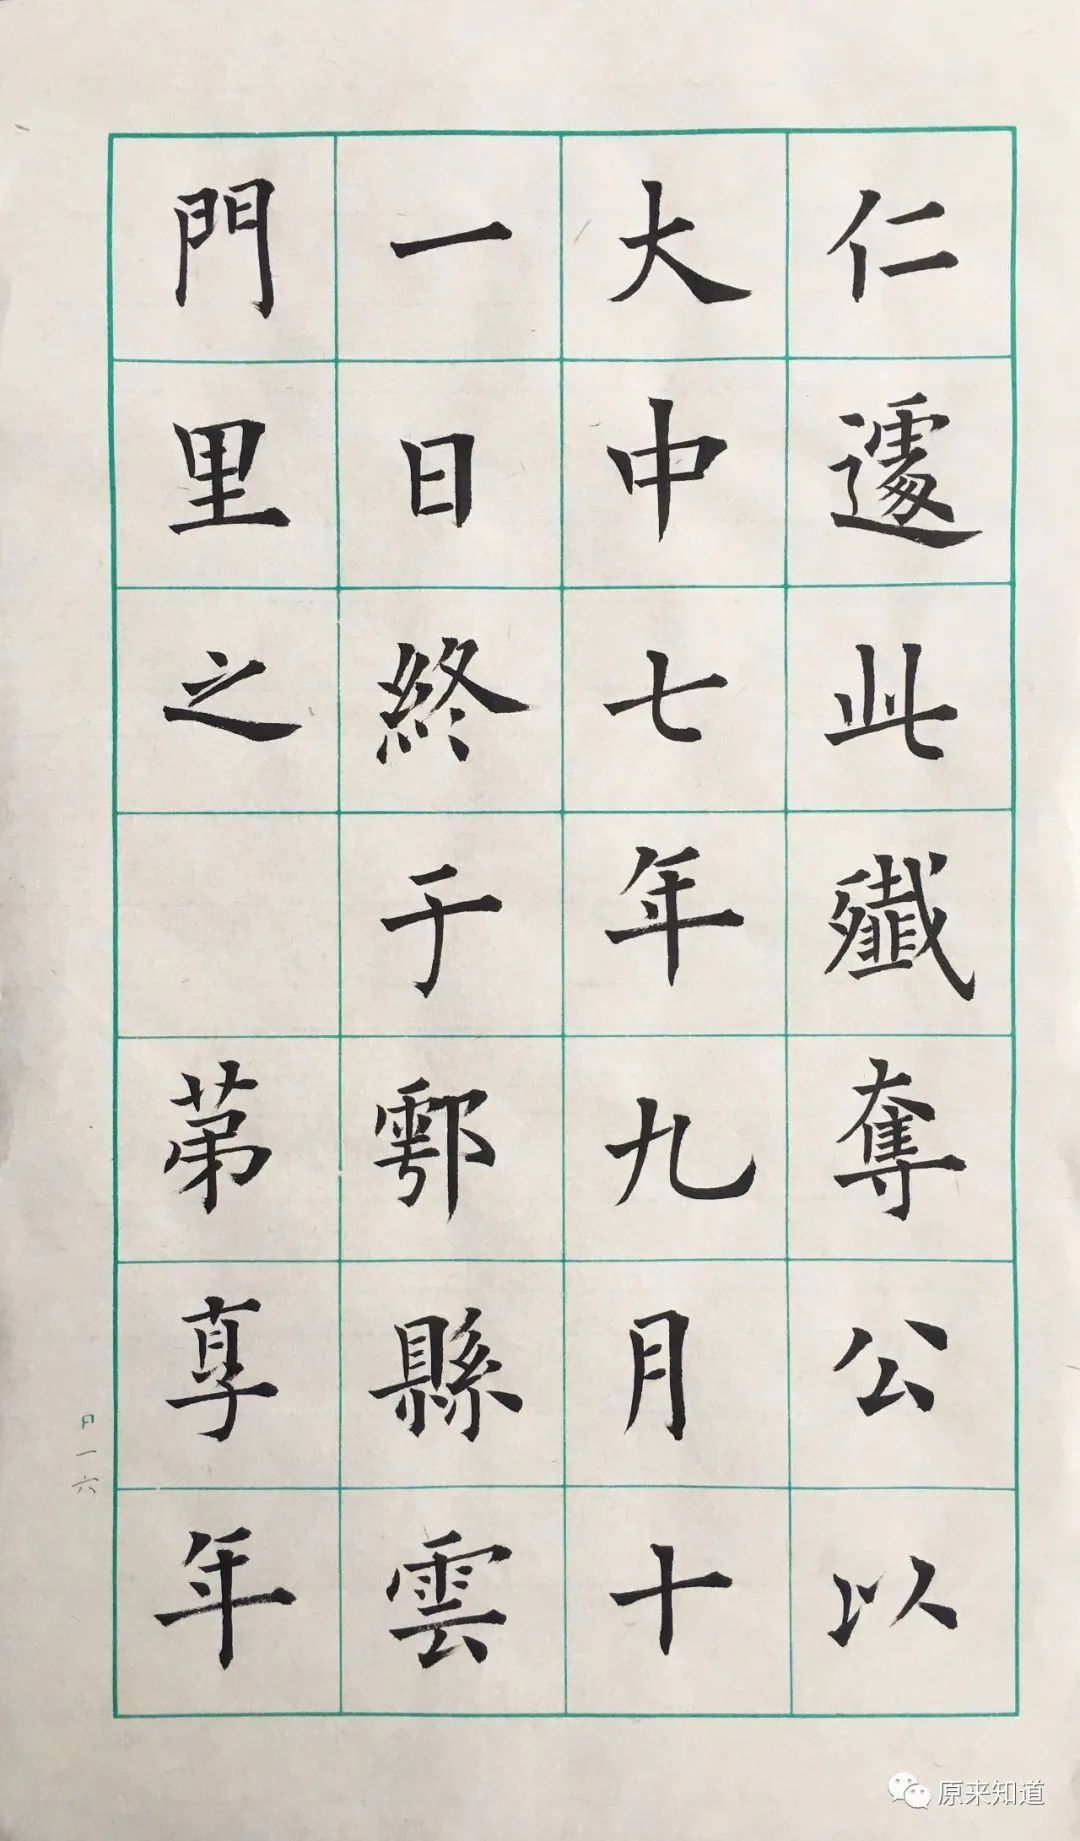 仁遽此殲奪公以
大中七年九月十
一日終于鄠縣雲
門里之 苐享年
一六
原来知道